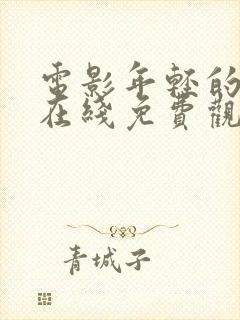 電影年輕的
在綫免費觀
青城子